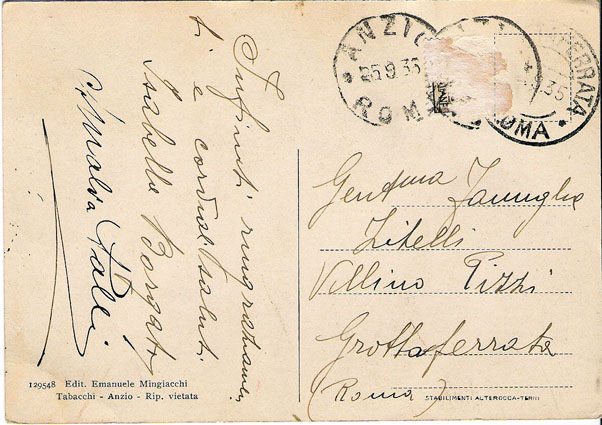 Infiniti ringraziamen
ti e cordiali saluti
Isabella Borgati
Amalia
ANZIO
25.9.35
ROMA
FERRATA
35
ROMA
Gent.ma Famiglia
Zitelli
Villino Pizzi
Grottaferrata
(Roma)
129548 Edit. Emanuele Mingiacchi
Tabacchi - Anzio - Rip. vietata
STABILIMENTI ALTEROCCA-TERNI